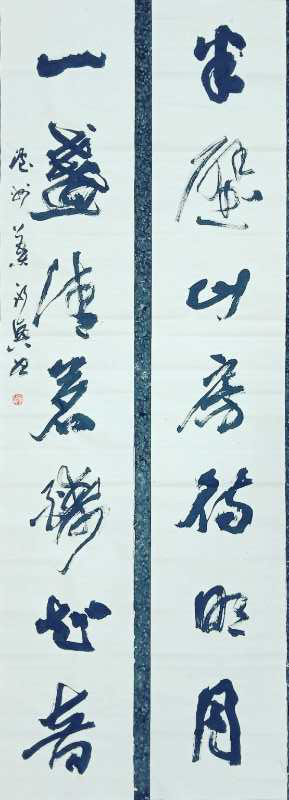 半壁山房待明月
一盞清茗酬知音